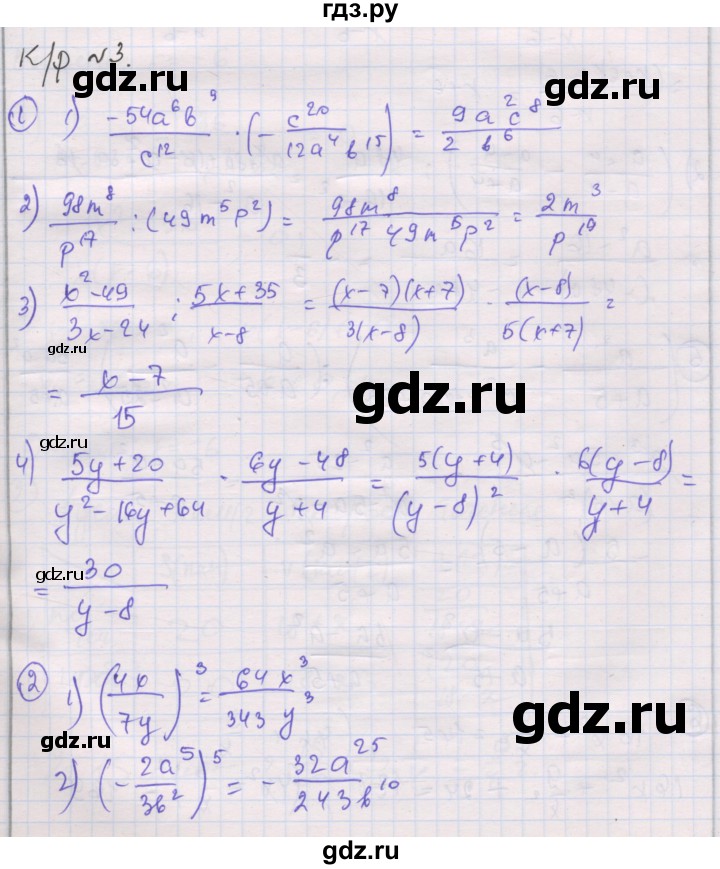 гдз.ру
К/р №3.
gdz.ru
① 1) \frac{-54a^6b^9}{c^{12}} · (-\frac{c^{20}}{12a^4b^{15}}) = \frac{9a^2c^8}{2b^6}
2) \frac{98m^8}{p^{17}} : (49m^5p^2) = \frac{98m^8}{p^{17} 49m^5p^2} = \frac{2m^3}{p^{19}}
gdz.ru
3) \frac{x^2-49}{3x-24} : \frac{5x+35}{x-8} = \frac{(x-7)(x+7)}{3(x-8)} · \frac{(x-8)}{5(x+7)} =
= \frac{x-7}{15}
gdz.ru
gdz.ru
4) \frac{5y+20}{y^2-16y+64} · \frac{6y-48}{y+4} = \frac{5(y+4)}{(y-8)^2} · \frac{6(y-8)}{y+4} =
gdz.ru
gdz.ru
= \frac{30}{y-8}
② 1) (\frac{4x}{7y})^3 = \frac{64x^3}{343y^3}
gdz.ru
2) (-\frac{2a^5}{3b^2})^5 = -\frac{32a^{25}}{243b^{10}}
gdz.ru
gdz.ru